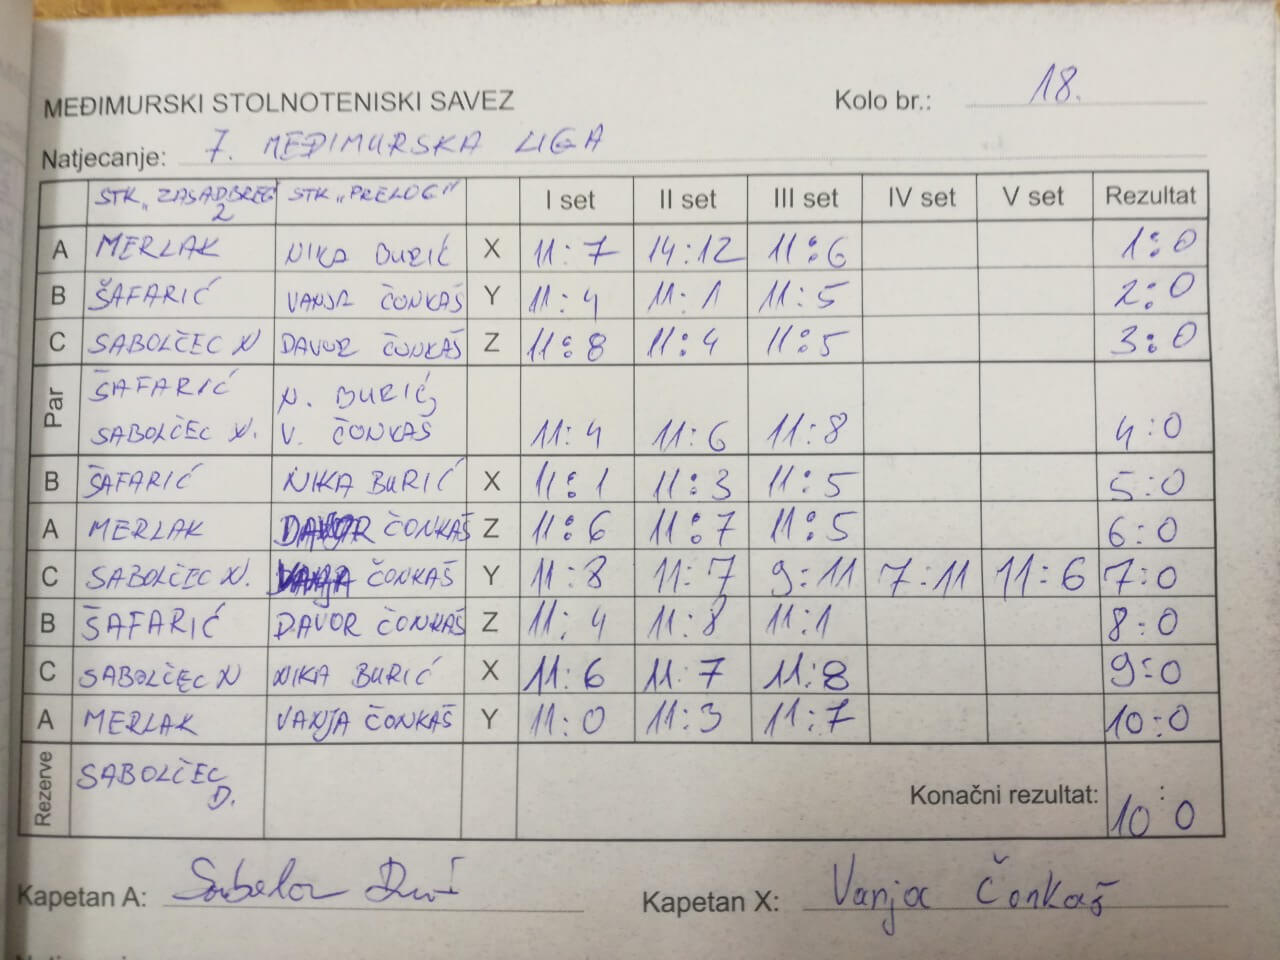 MEĐIMURSKI STOLNOTENISKI SAVEZ Kolo br.: 18.
Natjecanje: 7. MEĐIMURSKA LIGA
STK „ZASADBREG 2 STK „PRELOG" I set II set III set IV set V set Rezultat
A MERLAK NIKA BURIĆ X 11:7 14:12 11:6 1:0
B ŠAFARIĆ VANJA ČONKAŠ Y 11:4 11:1 11:5 2:0
C SABOLČEC N DAVOR ČONKAŠ Z 11:8 11:4 11:5 3:0
Par ŠAFARIĆ N. BURIĆ,
SABOLČEC N. V. ČONKAŠ 11:4 11:6 11:8 4:0
B ŠAFARIĆ NIKA BURIĆ X 11:1 11:3 11:5 5:0
A MERLAK DAVOR ČONKAŠ Z 11:6 11:7 11:5 6:0
C SABOLČEC N. VANJA ČONKAŠ Y 11:8 11:7 9:11 7:11 11:6 7:0
B ŠAFARIĆ DAVOR ČONKAŠ Z 11:4 11:8 11:1 8:0
C SABOLČEC N NIKA BURIĆ X 11:6 11:7 11:8 9:0
A MERLAK VANJA ČONKAŠ Y 11:0 11:3 11:7 10:0
Rezerve SABOLČEC D. Konačni rezultat: 10:0
Kapetan A: Kapetan X: Vanja Čonkaš